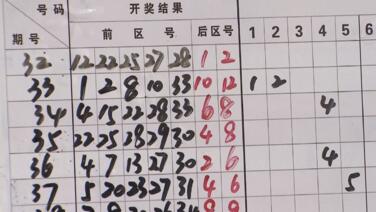 号码 开奖结果
期号 前区号 后区号 1 2 3 4 5 6
32 12 22 25 27 28 1 2
33 1 2 8 10 33 10 12 1 2
34 4 15 22 28 33 6 8 4
35 22 25 28 29 30 4 8
36 4 7 13 27 30 2 6 4
37 5 20 23 27 31 4 6 5